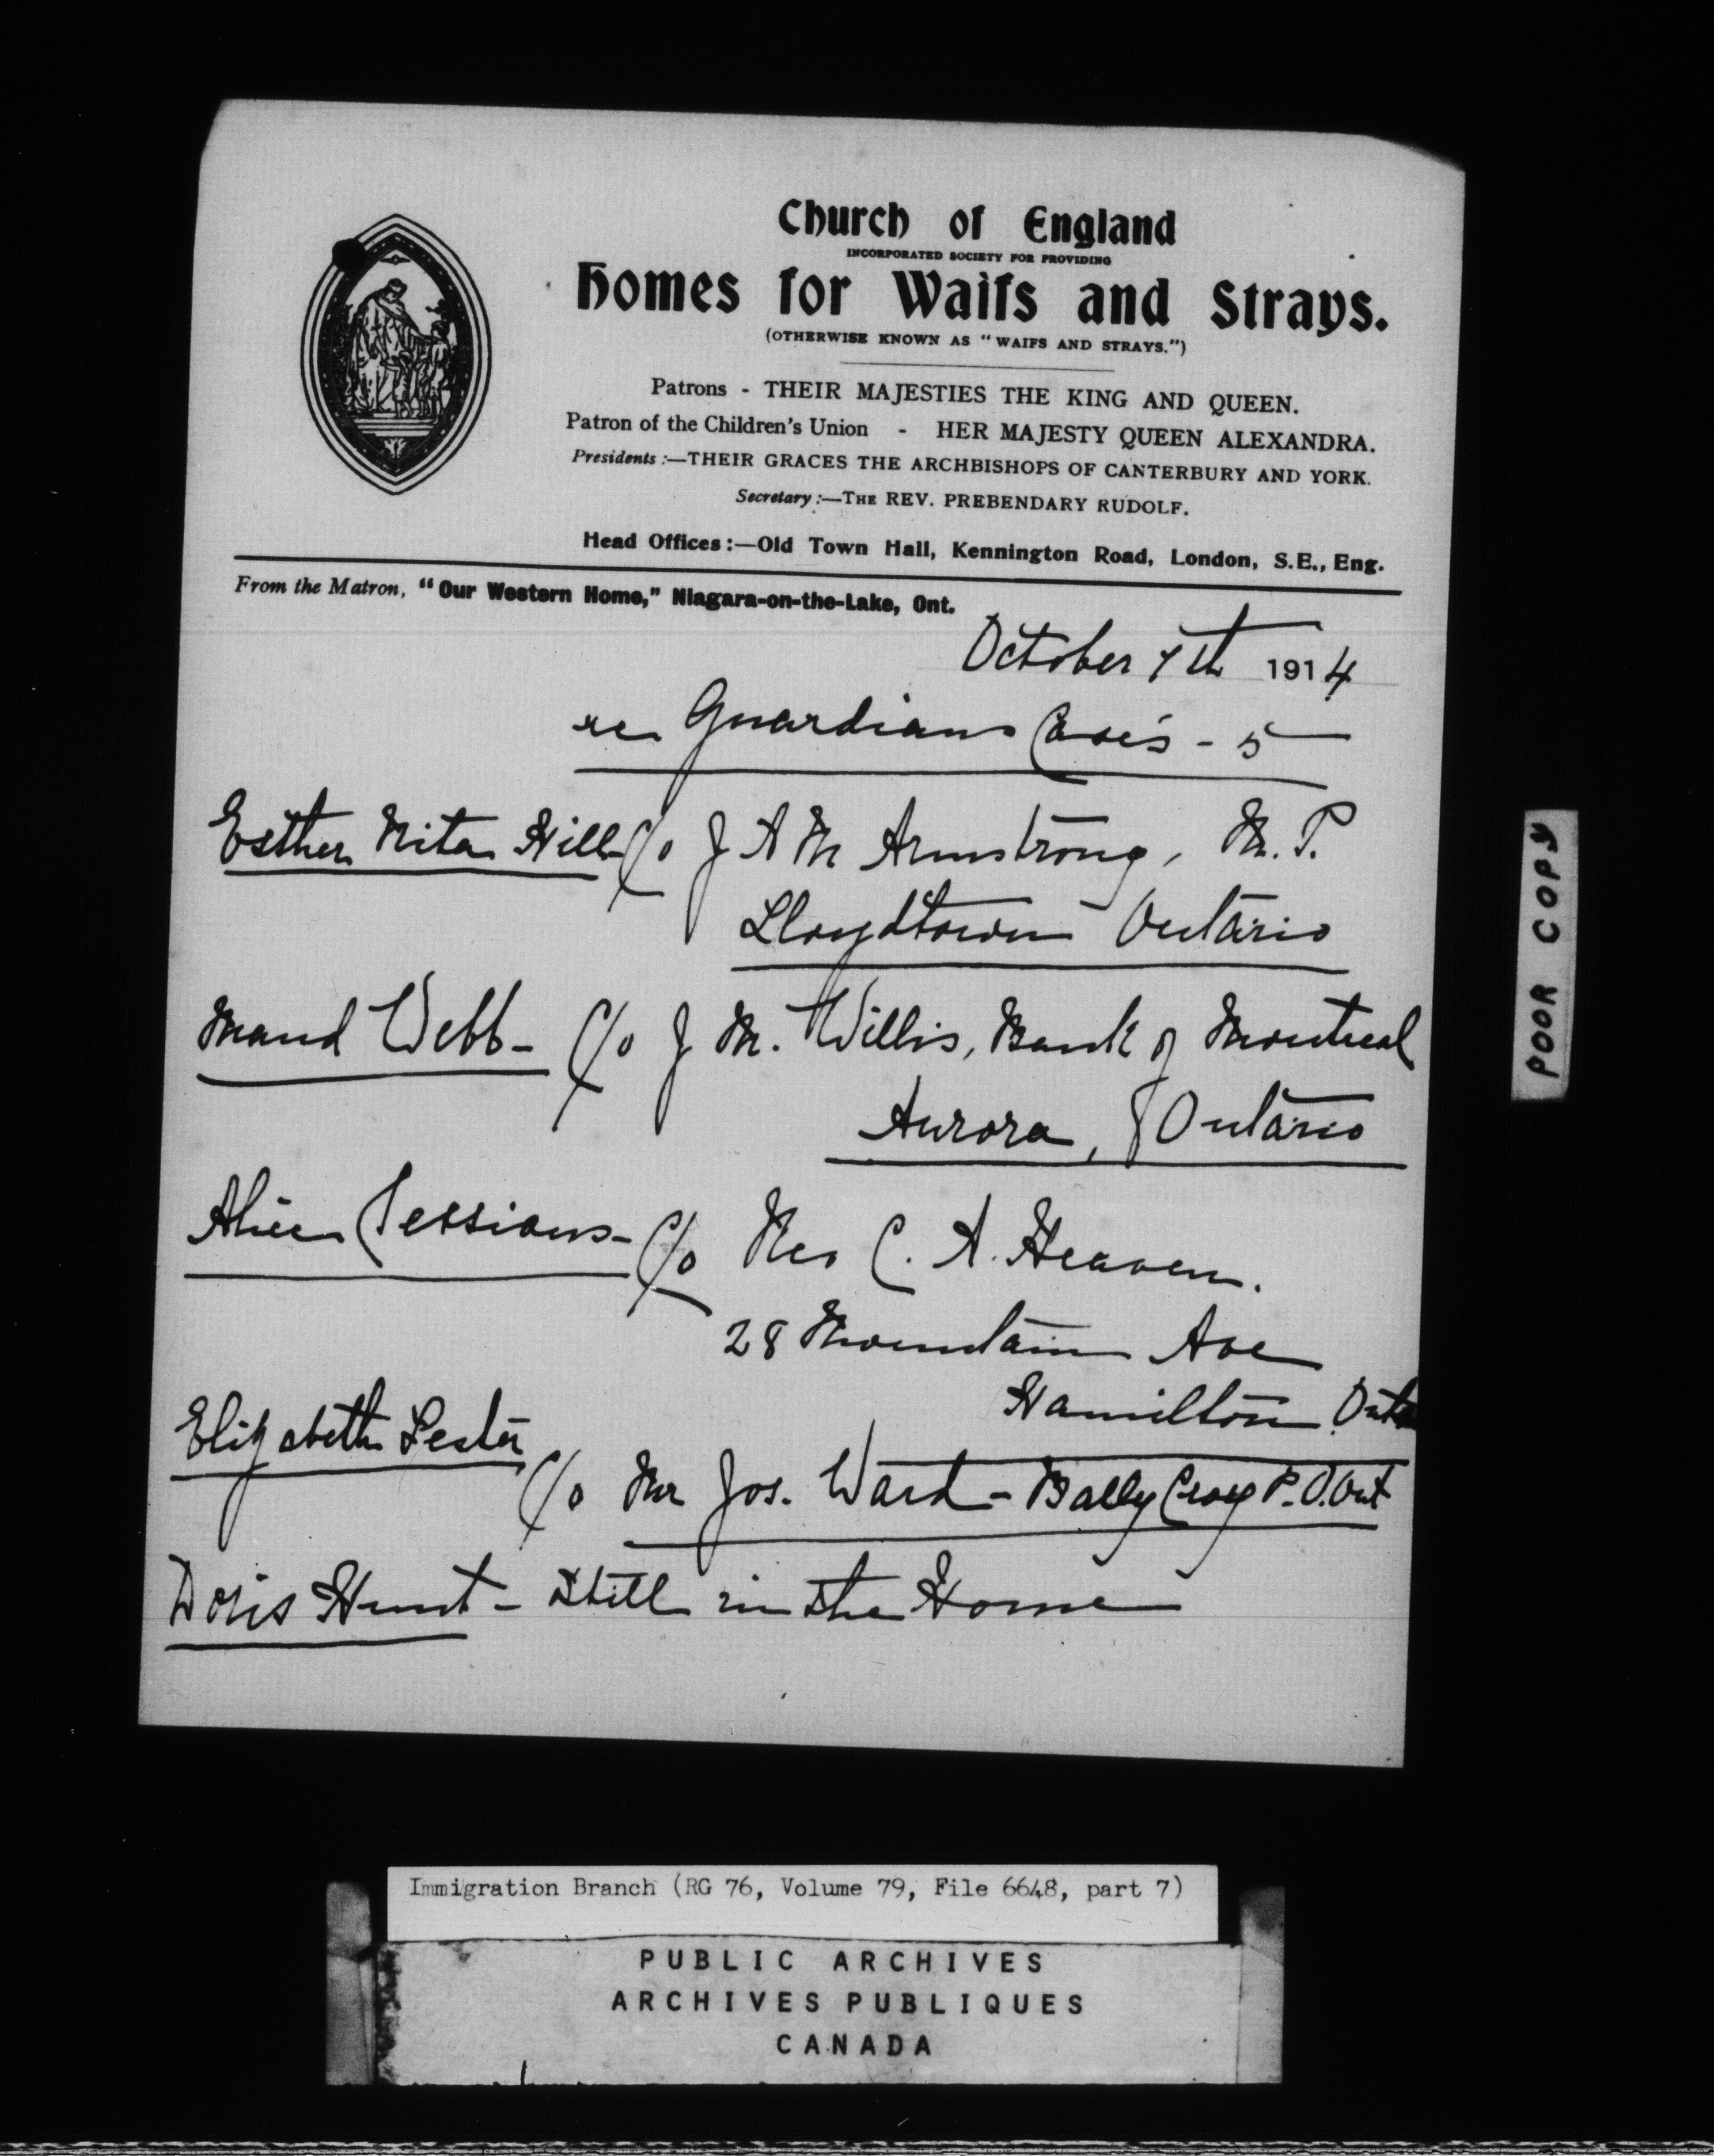 Church of England
INCORPORATED SOCIETY FOR PROVIDING
Homes for Waifs and Strays.
(OTHERWISE KNOWN AS "WAIFS AND STRAYS.")
Patrons - THEIR MAJESTIES THE KING AND QUEEN.
Patron of the Children's Union - HER MAJESTY QUEEN ALEXANDRA.
Presidents:—THEIR GRACES THE ARCHBISHOPS OF CANTERBURY AND YORK.
Secretary:—THE REV. PREBENDARY RUDOLF.
Head Offices:—Old Town Hall, Kennington Road, London, S.E., Eng.
From the Matron, "Our Western Home," Niagara-on-the-Lake, Ont.
October 7th 1914
re Guardians Cases - 5
Esther Nita Hill c/o J A M Armstrong, M.P.
Lloydtown Ontario
Maud Webb - c/o J M. Willis, Bank of Montreal
Aurora, Ontario
Alice Sessions - c/o C. A. Heaven.
28 Mountain Ave
Hamilton Ont
Elizabeth Lester
c/o Mr Jos. Ward - Bally Croy P.O. Ont
Doris Hunt - Still in the Home
POOR COPY
Immigration Branch (RG 76, Volume 79, File 6648, part 7)
PUBLIC ARCHIVES
ARCHIVES PUBLIQUES
CANADA